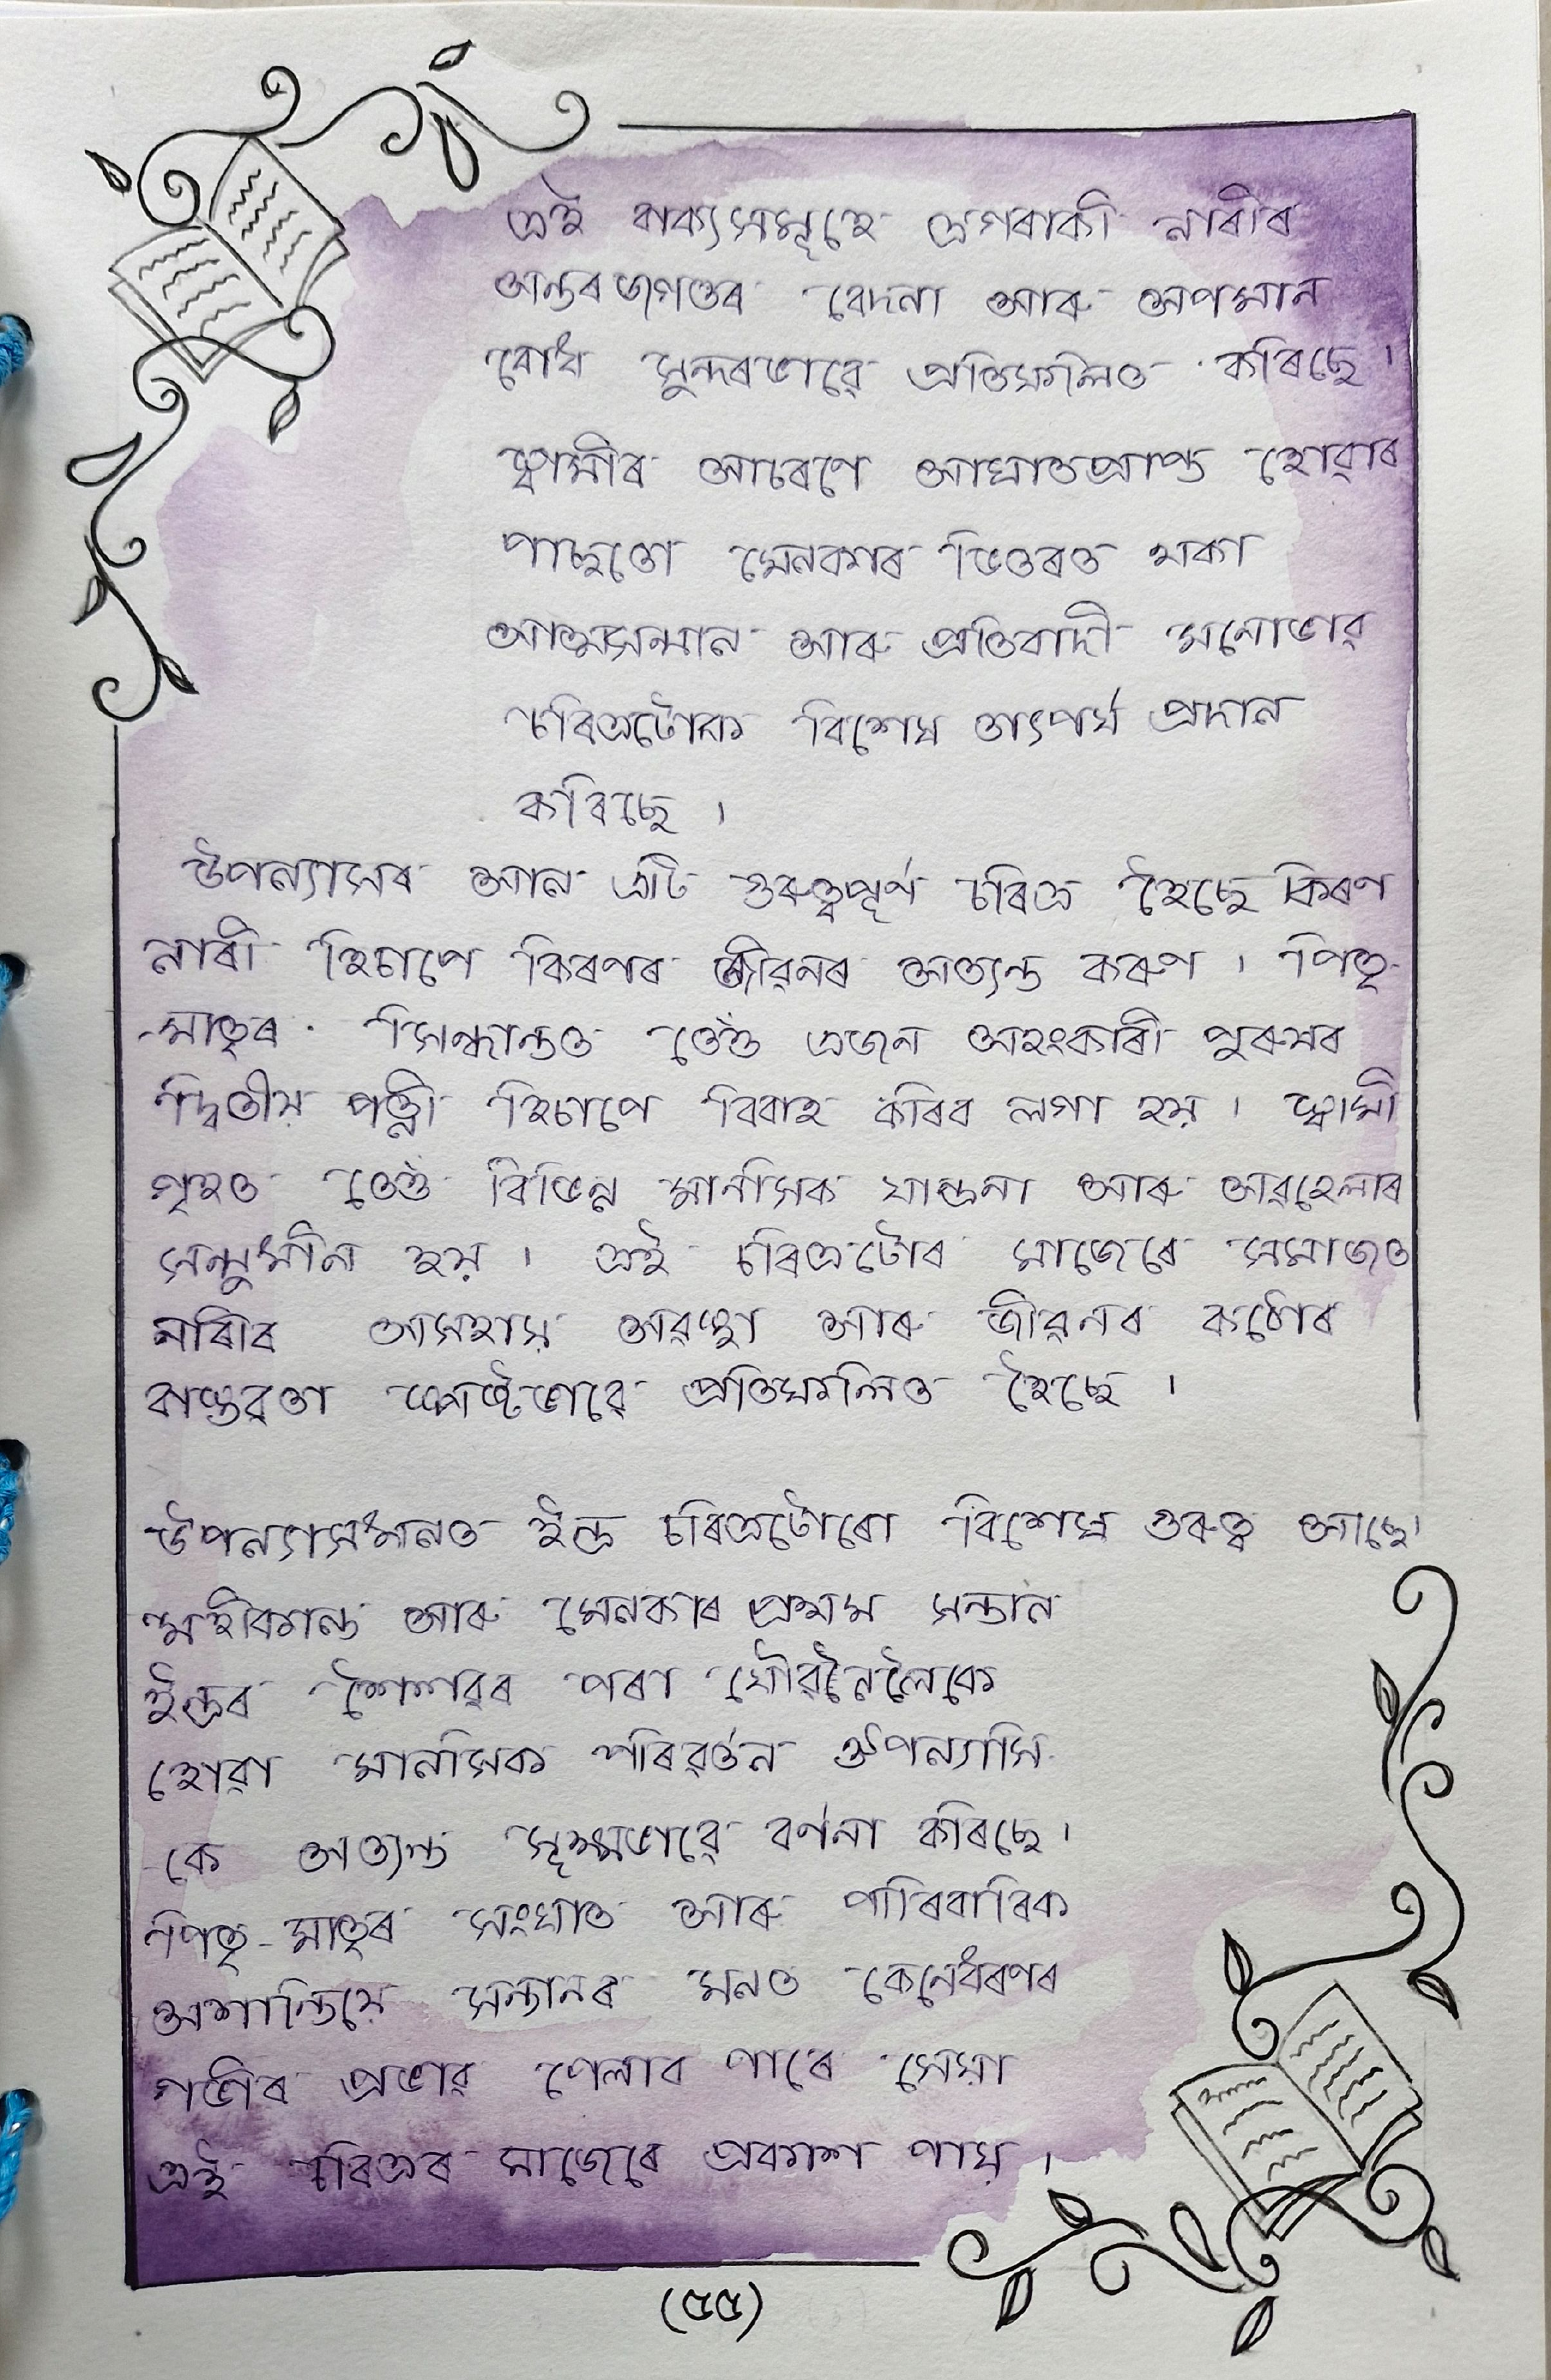 এই বাক্যসমূহে এগৰাকী নাৰীৰ
অন্তৰ জগতৰ বেদনা আৰু অপমান
বোধ সুন্দৰভাৱে প্ৰতিফলিত কৰিছে।
স্বামীৰ আচৰণে আঘাতপ্ৰাপ্ত হোৱাৰ
পাছতো মেনকাৰ ভিতৰত থকা
আত্মসন্মান আৰু প্ৰতিবাদী মনোভাৱ
চৰিত্ৰটোক বিশেষ তাৎপৰ্য প্ৰদান
কৰিছে ।
উপন্যাসৰ আন এটি গুৰুত্বপূৰ্ণ চৰিত্ৰ হৈছে কিৰণ
নাৰী হিচাপে কিৰণৰ জীৱনৰ অত্যন্ত কৰুণ । পিতৃ-
-মাতৃৰ সিদ্ধান্তত তেওঁ এজন অহংকাৰী পুৰুষৰ
দ্বিতীয় পত্নী হিচাপে বিবাহ কৰিব লগা হয় । স্বামী
গৃহত তেওঁ বিভিন্ন মানসিক যান্ত্ৰনা আৰু অৱহেলাৰ
সন্মুখীন হয় । এই চৰিত্ৰটোৰ মাজেৰে সমাজত
নাৰীৰ অসহায় অৱস্থা আৰু জীৱনৰ কঠোৰ
বাস্তৱতা স্পষ্টভাৱে প্ৰতিফলিত হৈছে ।
উপন্যাসখনত ইন্দ্ৰ চৰিত্ৰটোৰো বিশেষ গুৰুত্ব আছে।
মহীকান্ত আৰু মেনকাৰ প্ৰথম সন্তান
ইন্দ্ৰৰ শৈশৱৰ পৰা যৌৱনৈলৈকে
হোৱা মানসিক পৰিৱৰ্তন ঔপন্যাসি-
-কে অত্যন্ত সূক্ষ্মভাৱে বৰ্ণনা কৰিছে।
পিতৃ-মাতৃৰ সংঘাত আৰু পাৰিবাৰিক
অশান্তিয়ে সন্তানৰ মনত কেনেধৰণৰ
গভীৰ প্ৰভাৱ পেলাব পাৰে সেয়া
এই চৰিত্ৰৰ মাজেৰে প্ৰকাশ পায় ।
(৫৫)